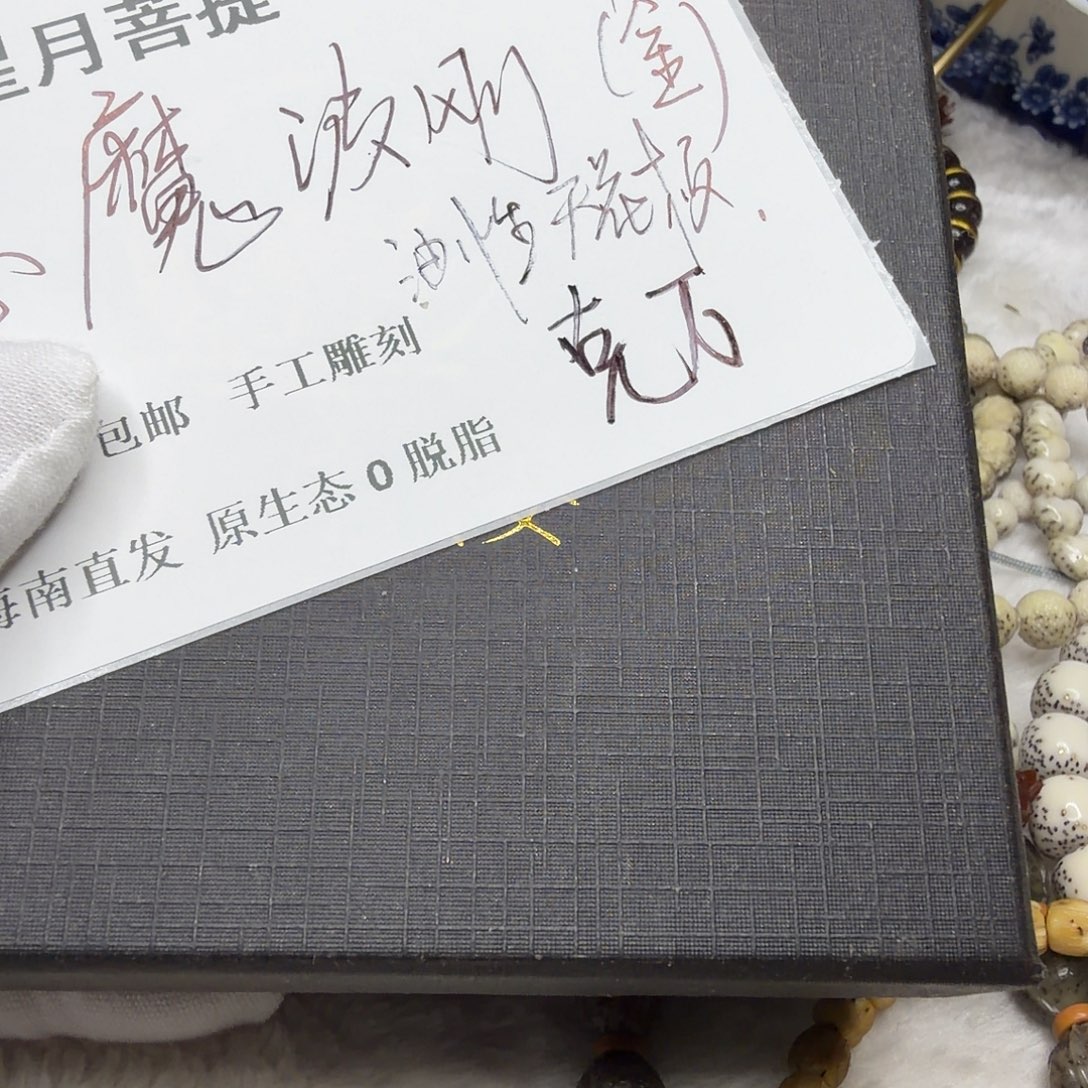 星月菩提
魔波刚(金)
油性天花板
克刀
包邮 手工雕刻
海南直发 原生态0脱脂